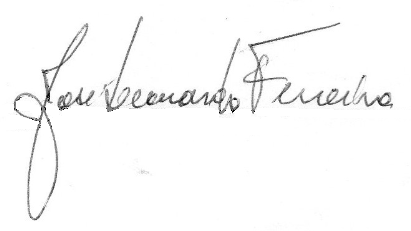 José Leonardo Ferreira